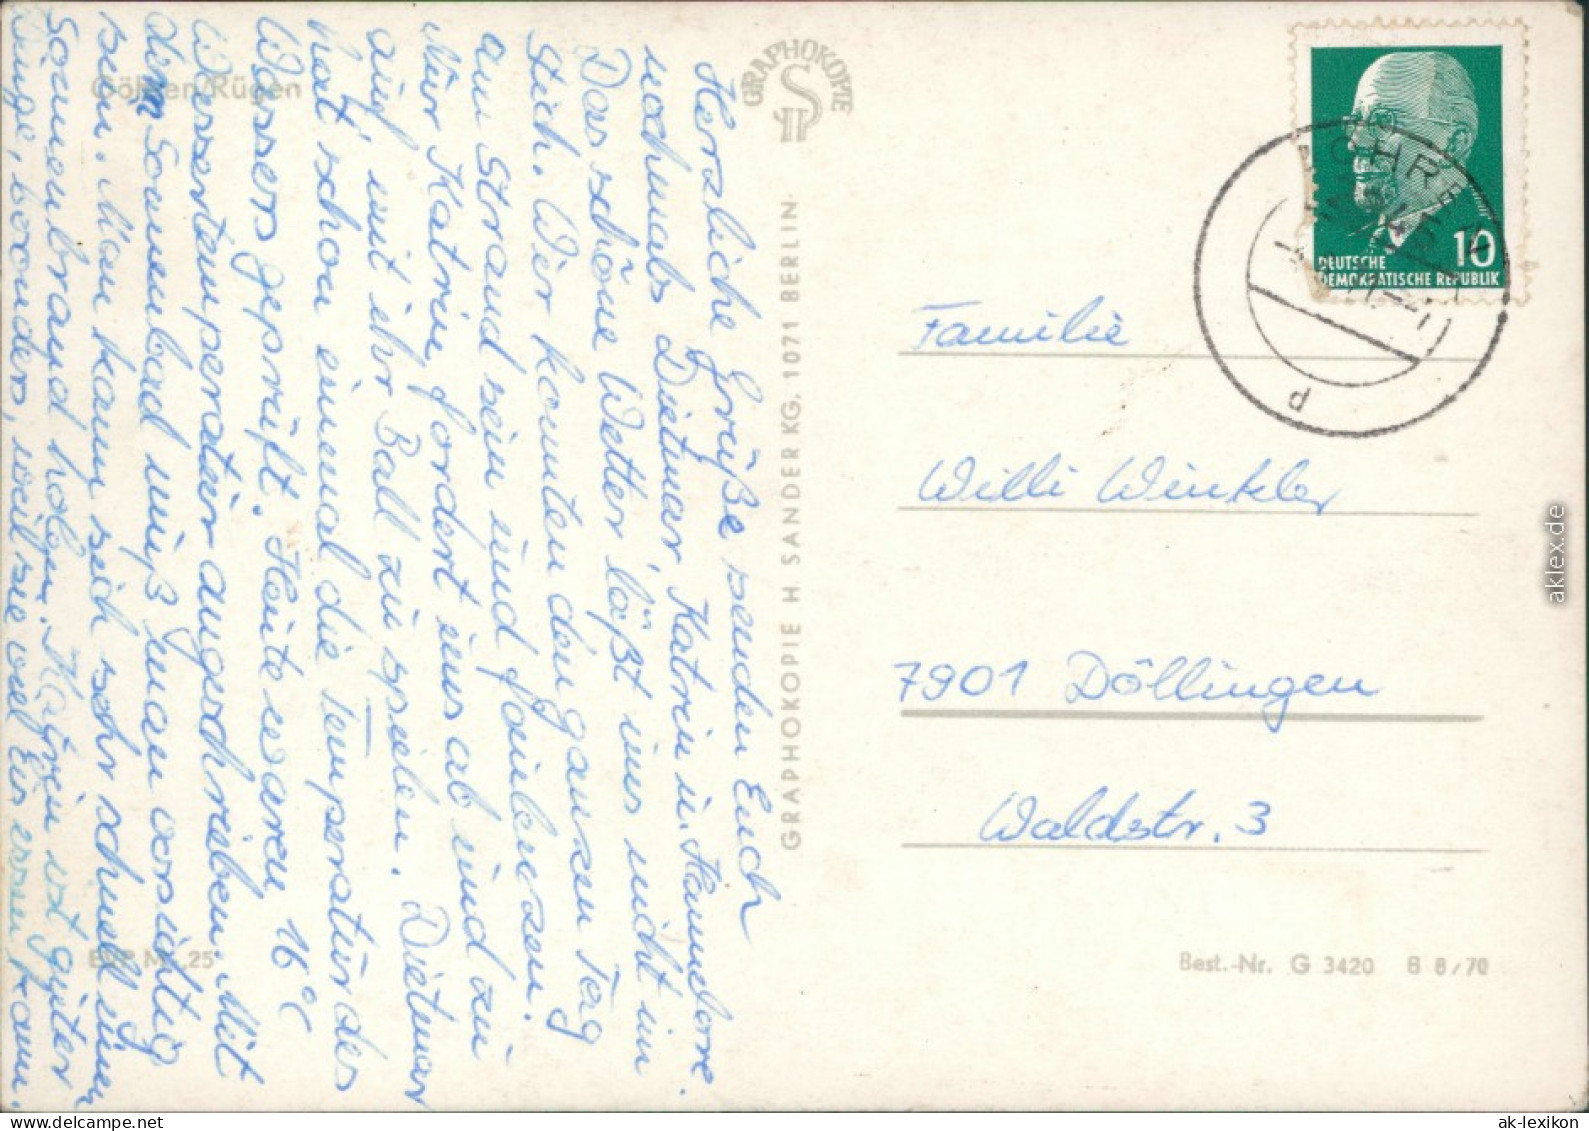 Göhren/Rügen
Herzliche Grüße senden Euch
nochmals Dietmar, Katrin u. Hannelore.
Das schöne Wetter läßt uns nicht im
Stich. Wir konnten den ganzen Tag
am Strand sein und faulenzen.
Nur Katrin fordert uns ab und zu
auf, mit ihr Ball zu spielen. Dietmar
hat schon einmal die Temperatur des
Wassers geprüft. Heute waren 16°C
Wassertemperatur angeschrieben. Mit
dem Sonnenbad muß man vorsichtig
sein. Man kann sich sehr schnell einen
Sonnenbrand holen. Katrin ist guter
Dinge, besonders, weil sie viel Eis essen kann.
EVP M -,25
GRAPHOKOPIE
GRAPHOKOPIE H. SANDER KG, 1071 BERLIN
10
DEUTSCHE
DEMOKRATISCHE REPUBLIK
GÖHREN
p
Familie
Willi Winkler
7901 Döllingen
Waldstr. 3
Best.-Nr. G 3420 B 8/70
aklex.de
ak-lexikon